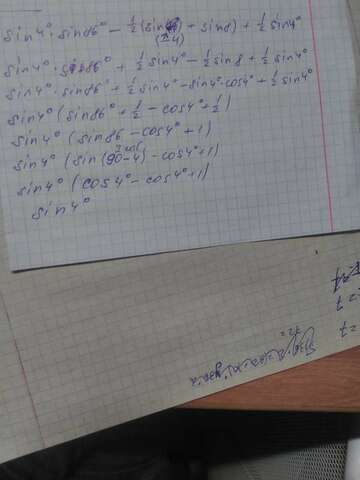 sin4°·sin86° - ½(sin + sin8) + ½sin4°
(-4)
sin4°·sin86° + ½sin4° - ½sin8 + ½sin4°
sin4°·sin86° + ½sin4° - sin4°·cos4° + ½sin4°
sin4°(sin86° + ½ - cos4° + ½)
sin4°(sin86 - cos4° + 1)
sin4°(sin(90-4) - cos4° + 1)
sin4°(cos4° - cos4° + 1)
sin4°
=7
=7